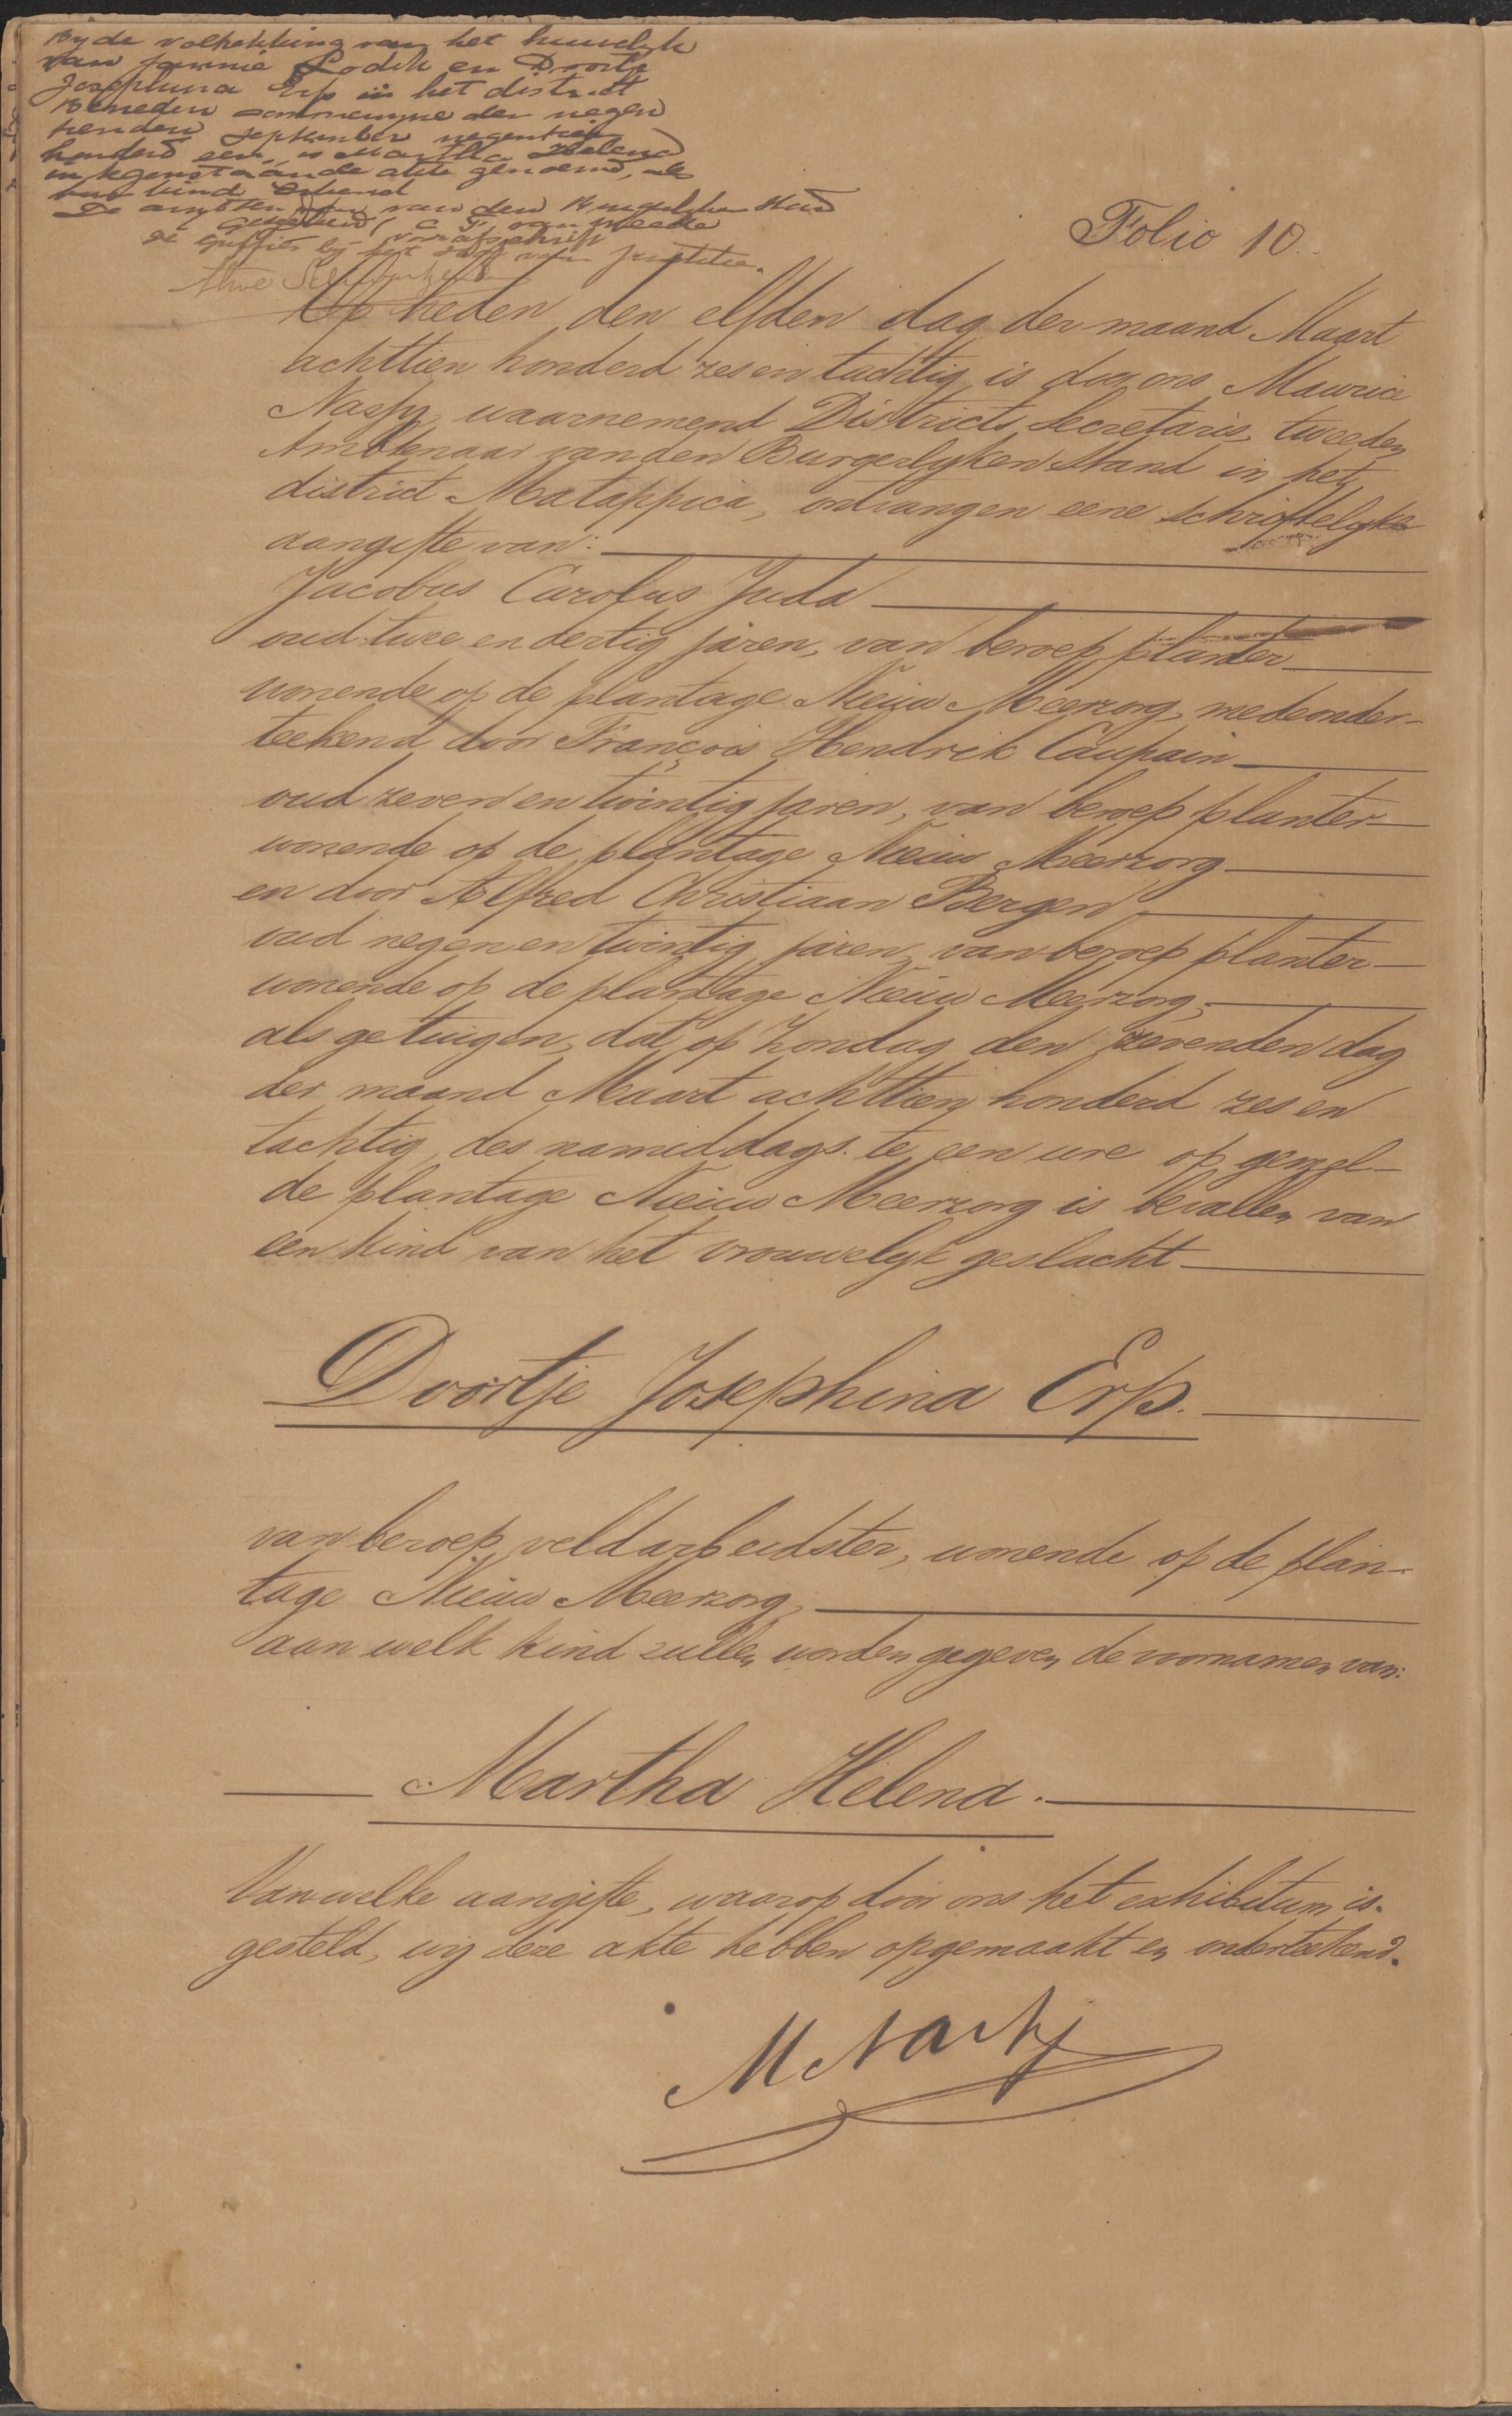 Bijde voltrekking van het huwelijk
van Jannie Lodik en Doortje
Josephina Erp in het district
Beneden Commewijne den negen
tienden September negentien
honderd een, is Martha Helena
in tegenstaande akte genoemd, als
hun kind erkend
De ambtenaar van den Burgerlijken Stand
(geteekend) C. F. van
voor afschrift
de Griffier bij het Hof van Justitie.
Folio 10.
Op heden den elfden dag der maand Maart
achttien honderd zes en tachtig is door ons Maurice
Nassy, waarnemend Districts Secretaris, tweeden
Ambtenaar van den Burgerlyken Stand in het
district Matappica, ontvangen eene schriftelyke
aangifte van:
Jacobus Carolus Juda
oud twee en dertig jaren, van beroep planter
wonende op de plantage Nieuw Meerzorg, medeonder-
teekend door François Hendrik Caupain
oud zeven en twintig jaren, van beroep planter
wonende op de plantage Nieuw Meerzorg
en door Alfred Christiaan Bergen
oud negen en twintig jaren, van beroep planter
wonende op de plantage Nieuw Meerzorg,
als getuigen, dat op Zondag den zevenden dag
der maand Maart achttien honderd zes en
tachtig, des namiddags te een ure op gemel-
de plantage Nieuw Meerzorg is bevallen van
een kind van het vrouwelyk geslacht
Doortje Josephina Erp.
van beroep veldarbeidster, wonende op de plan-
tage Nieuw Meerzorg,
aan welk kind zullen worden gegeven de voornamen van:
Martha Helena.
Van welke aangifte, waarop door ons het exhibitum is
gesteld, wij deze akte hebben opgemaakt en onderteekend.
M Nassy